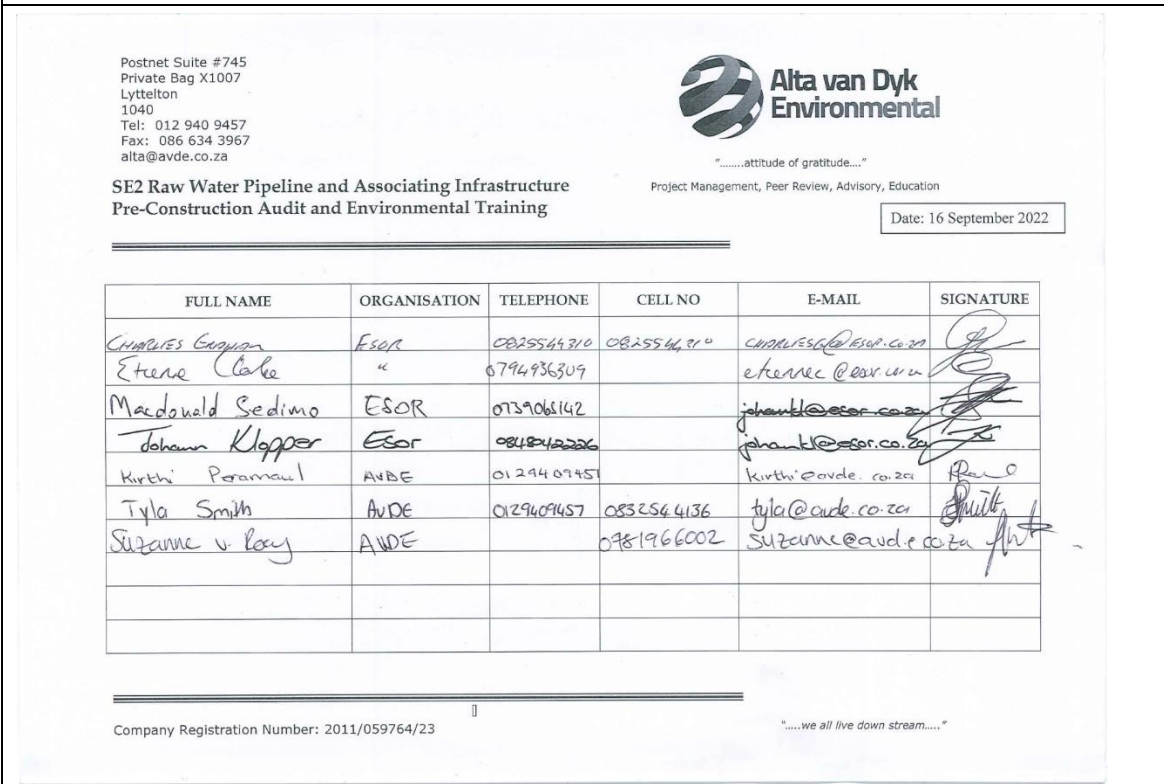 Postnet Suite #745
Private Bag X1007
Lyttelton
1040
Tel: 012 940 9457
Fax: 086 634 3967
alta@avde.co.za
Alta van Dyk
Environmental
"........attitude of gratitude...."
Project Management, Peer Review, Advisory, Education
SE2 Raw Water Pipeline and Associating Infrastructure
Pre-Construction Audit and Environmental Training
Date: 16 September 2022
FULL NAME ORGANISATION TELEPHONE CELL NO E-MAIL SIGNATURE
CHARLES ESOR
Etiene " 0794936309
Macdonald Sedimo ESOR 0739065142 johankl@esor.co.za
Johann Klopper Esor 0848042226 johankl@esor.co.za
Kirthi AVDE 0129409457 kirthi@avde.co.za
Tyla Smith AVDE 0129409457 0832544136 tyla@avde.co.za
Suzanne v. Rooy AVDE 0781966002 suzanne@avde.co.za
Company Registration Number: 2011/059764/23
".....we all live down stream....."